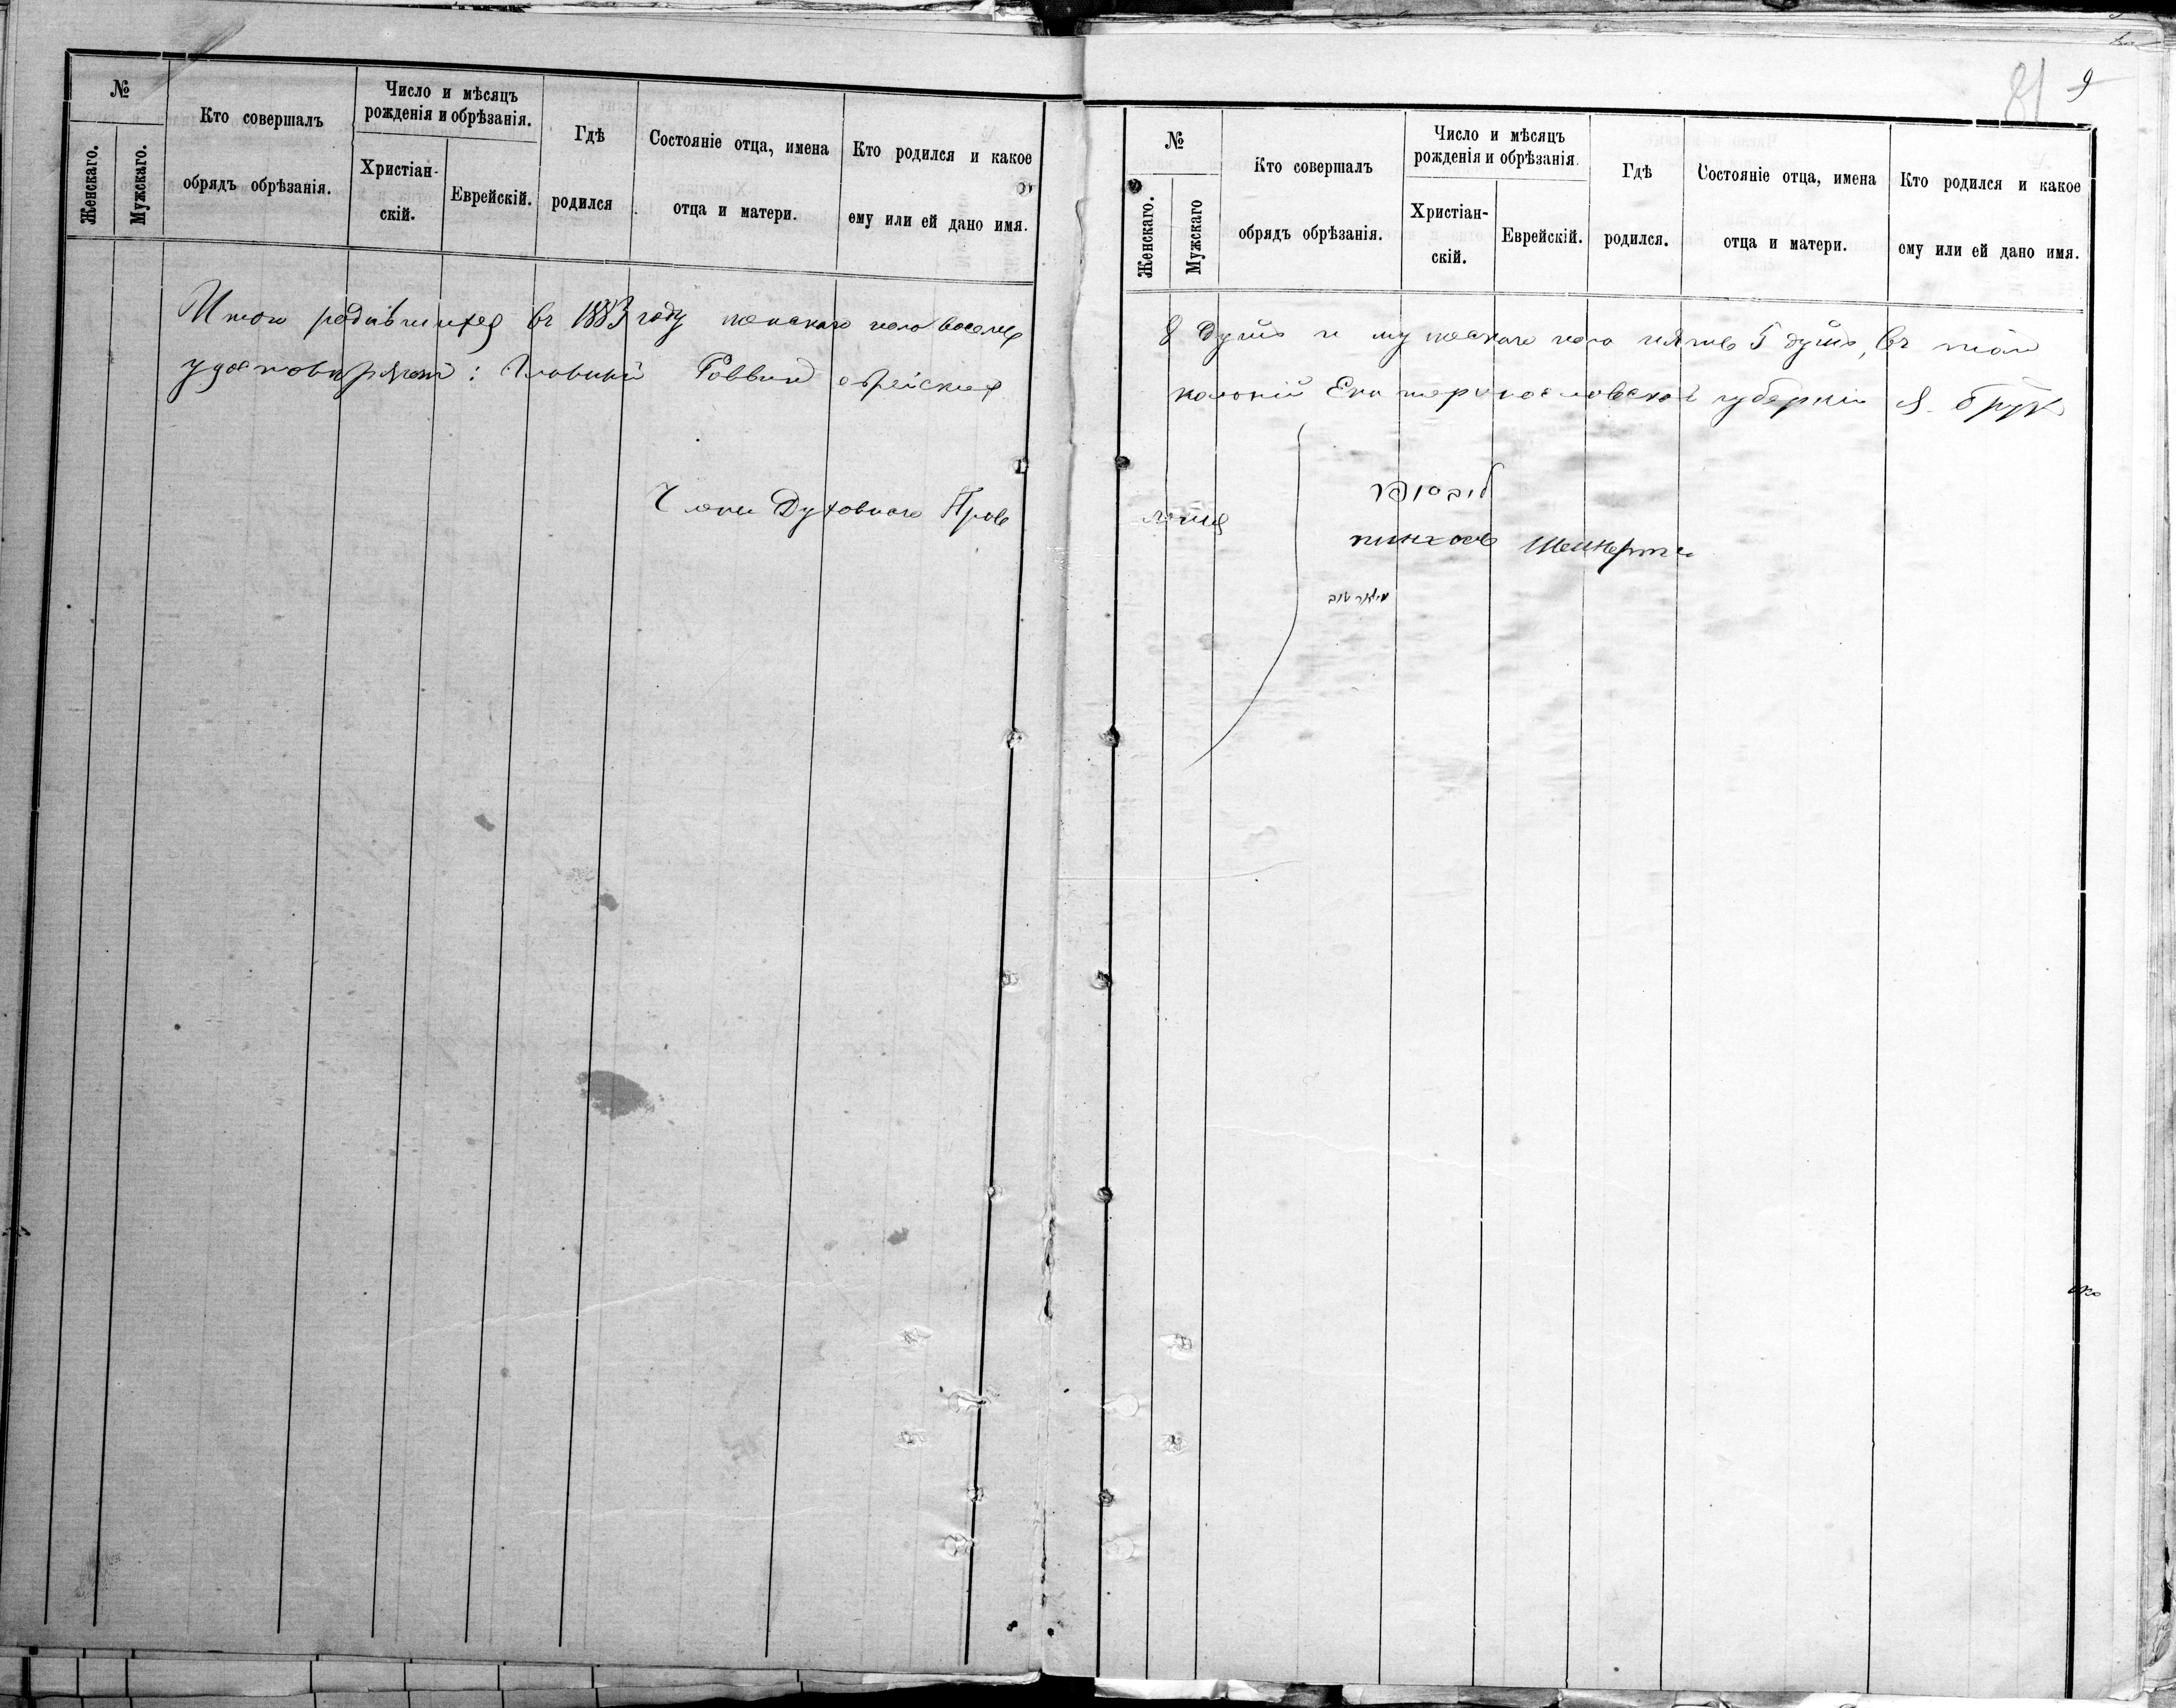 №
Женскаго.
Мужскаго.
Кто совершалъ
обрядъ обрѣзанія.
Число и мѣсяцъ
рожденія и обрѣзанія.
Христіан-
скій.
Еврейскій.
Гдѣ
родился
Состояніе отца, имена
отца и матери.
Кто родился и какое
ему или ей дано имя.
Итого родившихся въ 1883 году женскаго пола восемь
удостовѣряютъ: Главный Раввинъ еврейскихъ
Члены Духовнаго Прав
81 9
№
Женскаго.
Мужскаго
Кто совершалъ
обрядъ обрѣзанія.
Число и мѣсяцъ
рожденія и обрѣзанія.
Христіан-
скій.
Еврейскій.
Гдѣ
родился.
Состояніе отца, имена
отца и матери.
Кто родился и какое
ему или ей дано имя.
8 душъ и мужескаго пола пять 5 душъ, въ
колоній Екатеринославской губерніи
ленія
пинхосъ